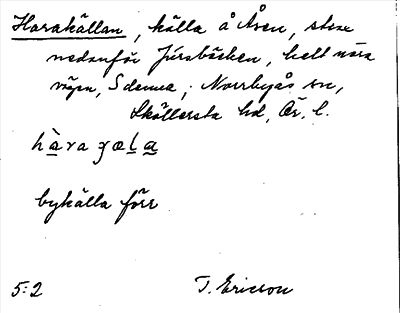 Harakällan, källa å Åsen, stax
nedanför Jursbacken, helt nära
vägen, S denna, Norrbyås sn,
Sköllersta hd, Ör. l.
hàra ɣœḷa
bykälla förr
5:2 T. Ericson